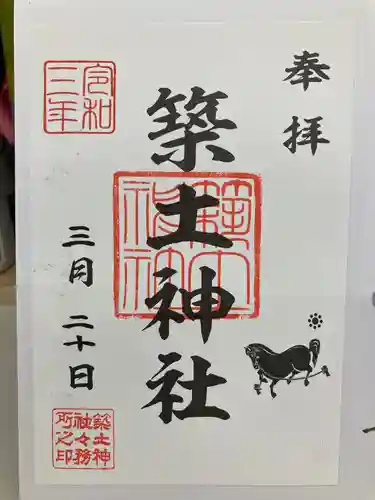 奉拝
築土神社
令和三年
三月二十日
築土神社
築土神
社々務
所之印